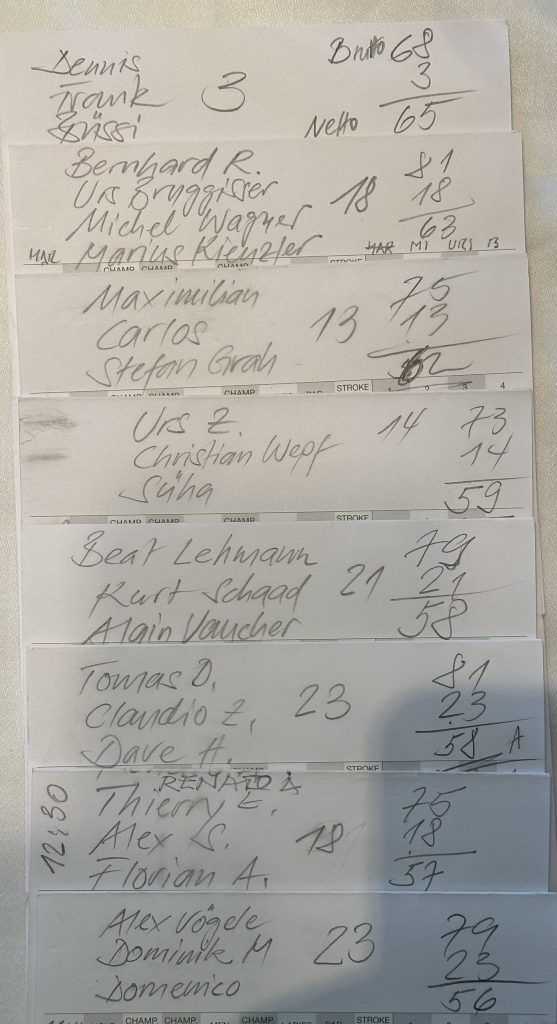 Dennis Brutto 68
Frank 3 3
Süssi Netto 65
Bernhard R. 81
Urs Bruggisser 18 18
Michel Wagner 63
MAR Marius Kienzler MAR MI URS B
CHAMP. CHAMP. CHAMP. STROKE
Maximilian 75
Carlos 13 13
Stefan Grah 62
CHAMP. CHAMP. CHAMP. PAR STROKE 1 2 3 4
Urs Z. 14 73
Christian Wepf 14
Süha 59
CHAMP. CHAMP. CHAMP. STROKE
Beat Lehmann 79
Kurt Schaad 21 21
Alain Vaucher 58
Tomas D. 81
Claudio Z. 23 23
Dave H. 58 A
STROKE
RENATO A
12:30 Thierry E. 75
Alex S. 18 18
Florian A. 57
Alex Vögele 79
Dominik M 23 23
Domenico 56
CHAMP. CHAMP. MEN CHAMP. LADIES PAR STROKE